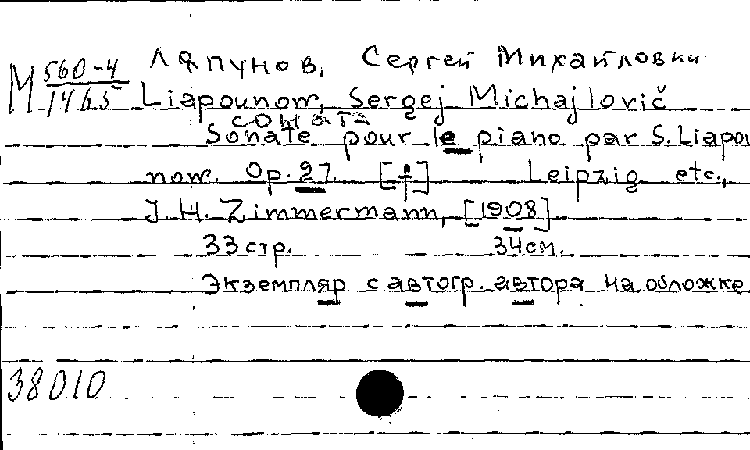 М 560-4
1465
Ляпунов, Сергей Михайлович
Liapounow, Sergej Michajlovič
соната
Sonate pour le piano par S. Liapou
now. Op. 27. [ф] Leipzig etc.,
J. H. Zimmermann, [1908]
33 стр. 34 см.
Экземпляр с автогр. автора на обложке
38010